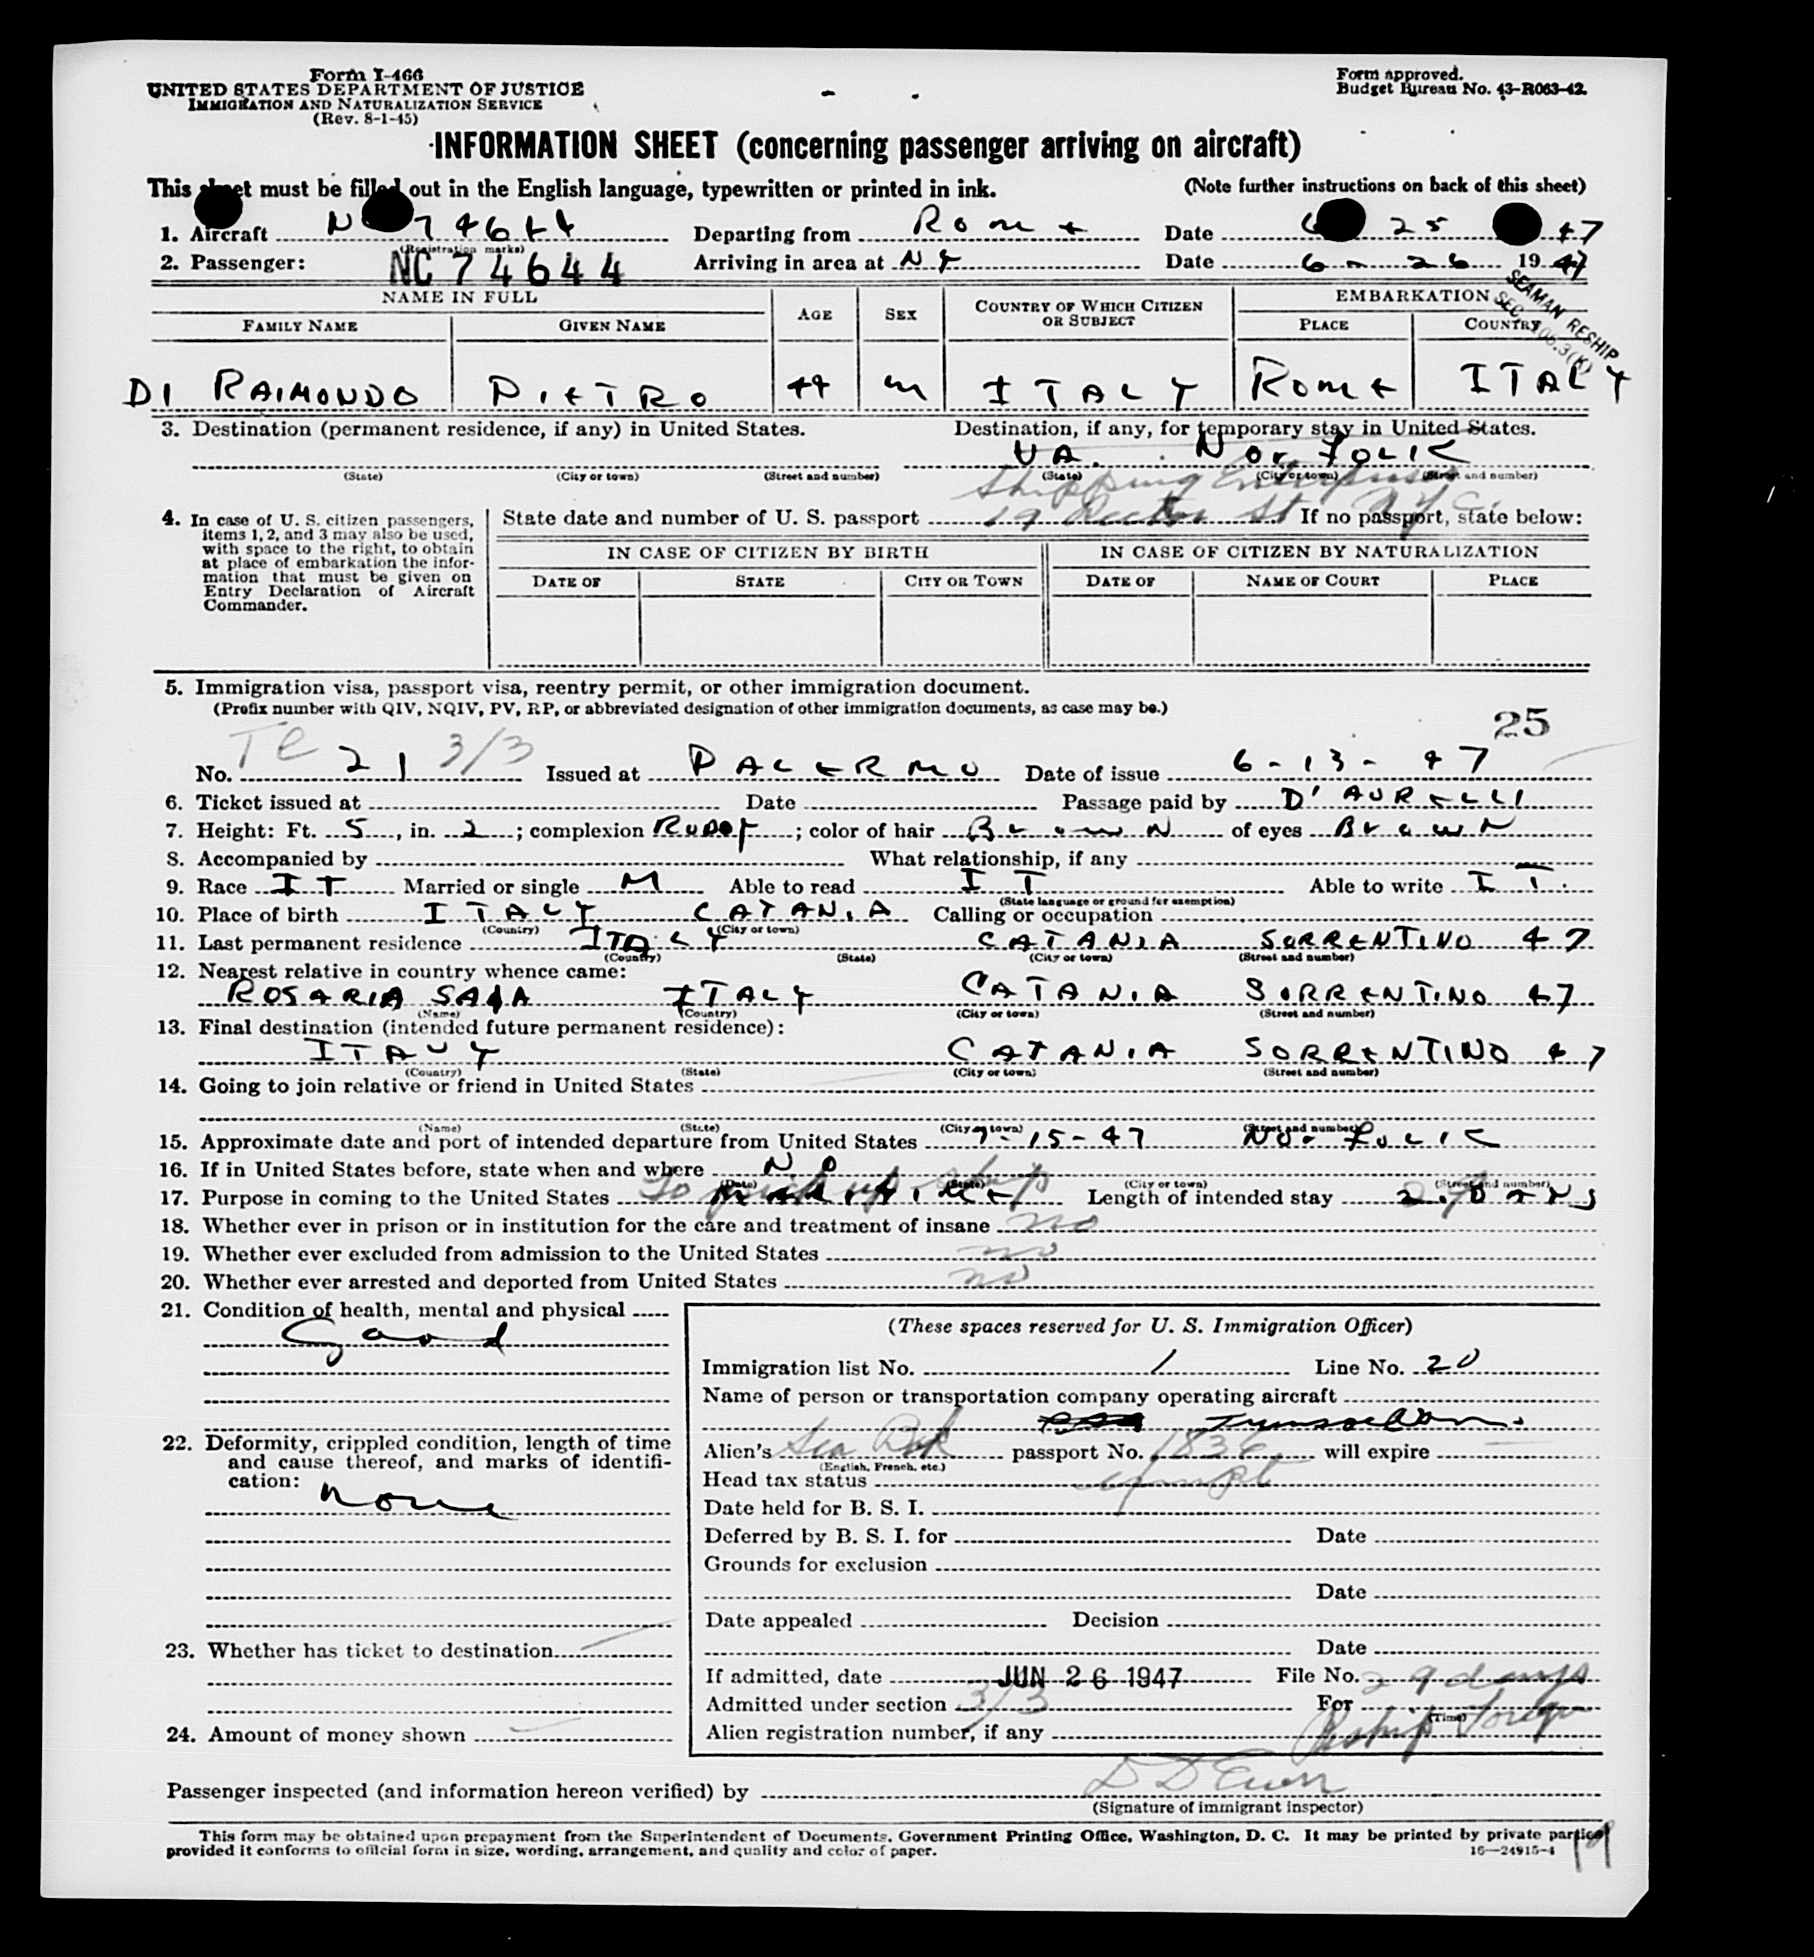 Form I-466
UNITED STATES DEPARTMENT OF JUSTICE
IMMIGRATION AND NATURALIZATION SERVICE
(Rev. 8-1-45)
Form approved.
Budget Bureau No. 43-R063-42.
INFORMATION SHEET (concerning passenger arriving on aircraft)
This sheet must be filled out in the English language, typewritten or printed in ink. (Note further instructions on back of this sheet)
1. Aircraft N 74644 Departing from Rome Date 6 25 47
(Registration marks)
2. Passenger: NC74644 Arriving in area at NY Date 6-26 1947
SEAMAN RESHIP
NAME IN FULL EMBARKATION
FAMILY NAME GIVEN NAME AGE SEX COUNTRY OF WHICH CITIZEN OR SUBJECT PLACE COUNTRY
DI RAIMONDO PIETRO 44 M ITALY ROME ITALY
3. Destination (permanent residence, if any) in United States. Destination, if any, for temporary stay in United States.
VA. NORFOLK
(State) (City or town) (Street and number) (State) (City or town) (Street and number)
Shipping Enterprises
19 Rector St N.Y.C.
4. In case of U. S. citizen passengers, items 1, 2, and 3 may also be used, with space to the right, to obtain at place of embarkation the information that must be given on Entry Declaration of Aircraft Commander.
State date and number of U. S. passport If no passport, state below:
IN CASE OF CITIZEN BY BIRTH IN CASE OF CITIZEN BY NATURALIZATION
DATE OF STATE CITY OR TOWN DATE OF NAME OF COURT PLACE
5. Immigration visa, passport visa, reentry permit, or other immigration document.
(Prefix number with QIV, NQIV, PV, RP, or abbreviated designation of other immigration documents, as case may be.)
25
No. 21 3/3 Issued at PALERMO Date of issue 6-13-47
6. Ticket issued at Date Passage paid by D'AURELLI
7. Height: Ft. 5, in. 2; complexion RUDDY; color of hair BROWN of eyes BROWN
8. Accompanied by What relationship, if any
9. Race IT Married or single M Able to read IT Able to write IT.
(State language or ground for exemption)
10. Place of birth ITALY CATANIA Calling or occupation
(Country) (City or town)
11. Last permanent residence ITALY CATANIA SORRENTINO 47
(Country) (State) (City or town) (Street and number)
12. Nearest relative in country whence came:
ROSARIA SAIA ITALY CATANIA SORRENTINO 47
(Name) (Country) (City or town) (Street and number)
13. Final destination (intended future permanent residence):
ITALY CATANIA SORRENTINO 47
(Country) (State) (City or town) (Street and number)
14. Going to join relative or friend in United States
(Name) (State) (City or town) (Street and number)
15. Approximate date and port of intended departure from United States 7-15-47 NORFOLK
16. If in United States before, state when and where NO
(Date) (State) (City or town) (Street and number)
17. Purpose in coming to the United States To pick up ship Length of intended stay DAYS
18. Whether ever in prison or in institution for the care and treatment of insane no
19. Whether ever excluded from admission to the United States no
20. Whether ever arrested and deported from United States no
21. Condition of health, mental and physical
Good
22. Deformity, crippled condition, length of time and cause thereof, and marks of identification:
None
23. Whether has ticket to destination
24. Amount of money shown
(These spaces reserved for U. S. Immigration Officer)
Immigration list No. 1 Line No. 20
Name of person or transportation company operating aircraft
Alien's Sea Bk passport No. 1836 will expire
(English, French, etc.)
Head tax status exempt
Date held for B. S. I.
Deferred by B. S. I. for Date
Grounds for exclusion
Date
Date appealed Decision
Date
If admitted, date JUN 26 1947 File No. 29 days
Admitted under section 3/3 For
(Time)
Alien registration number, if any Reship Foreign
Passenger inspected (and information hereon verified) by
(Signature of immigrant inspector)
This form may be obtained upon prepayment from the Superintendent of Documents, Government Printing Office, Washington, D. C. It may be printed by private parties
provided it conforms to official form in size, wording, arrangement, and quality and color of paper. 16—24915-4
19